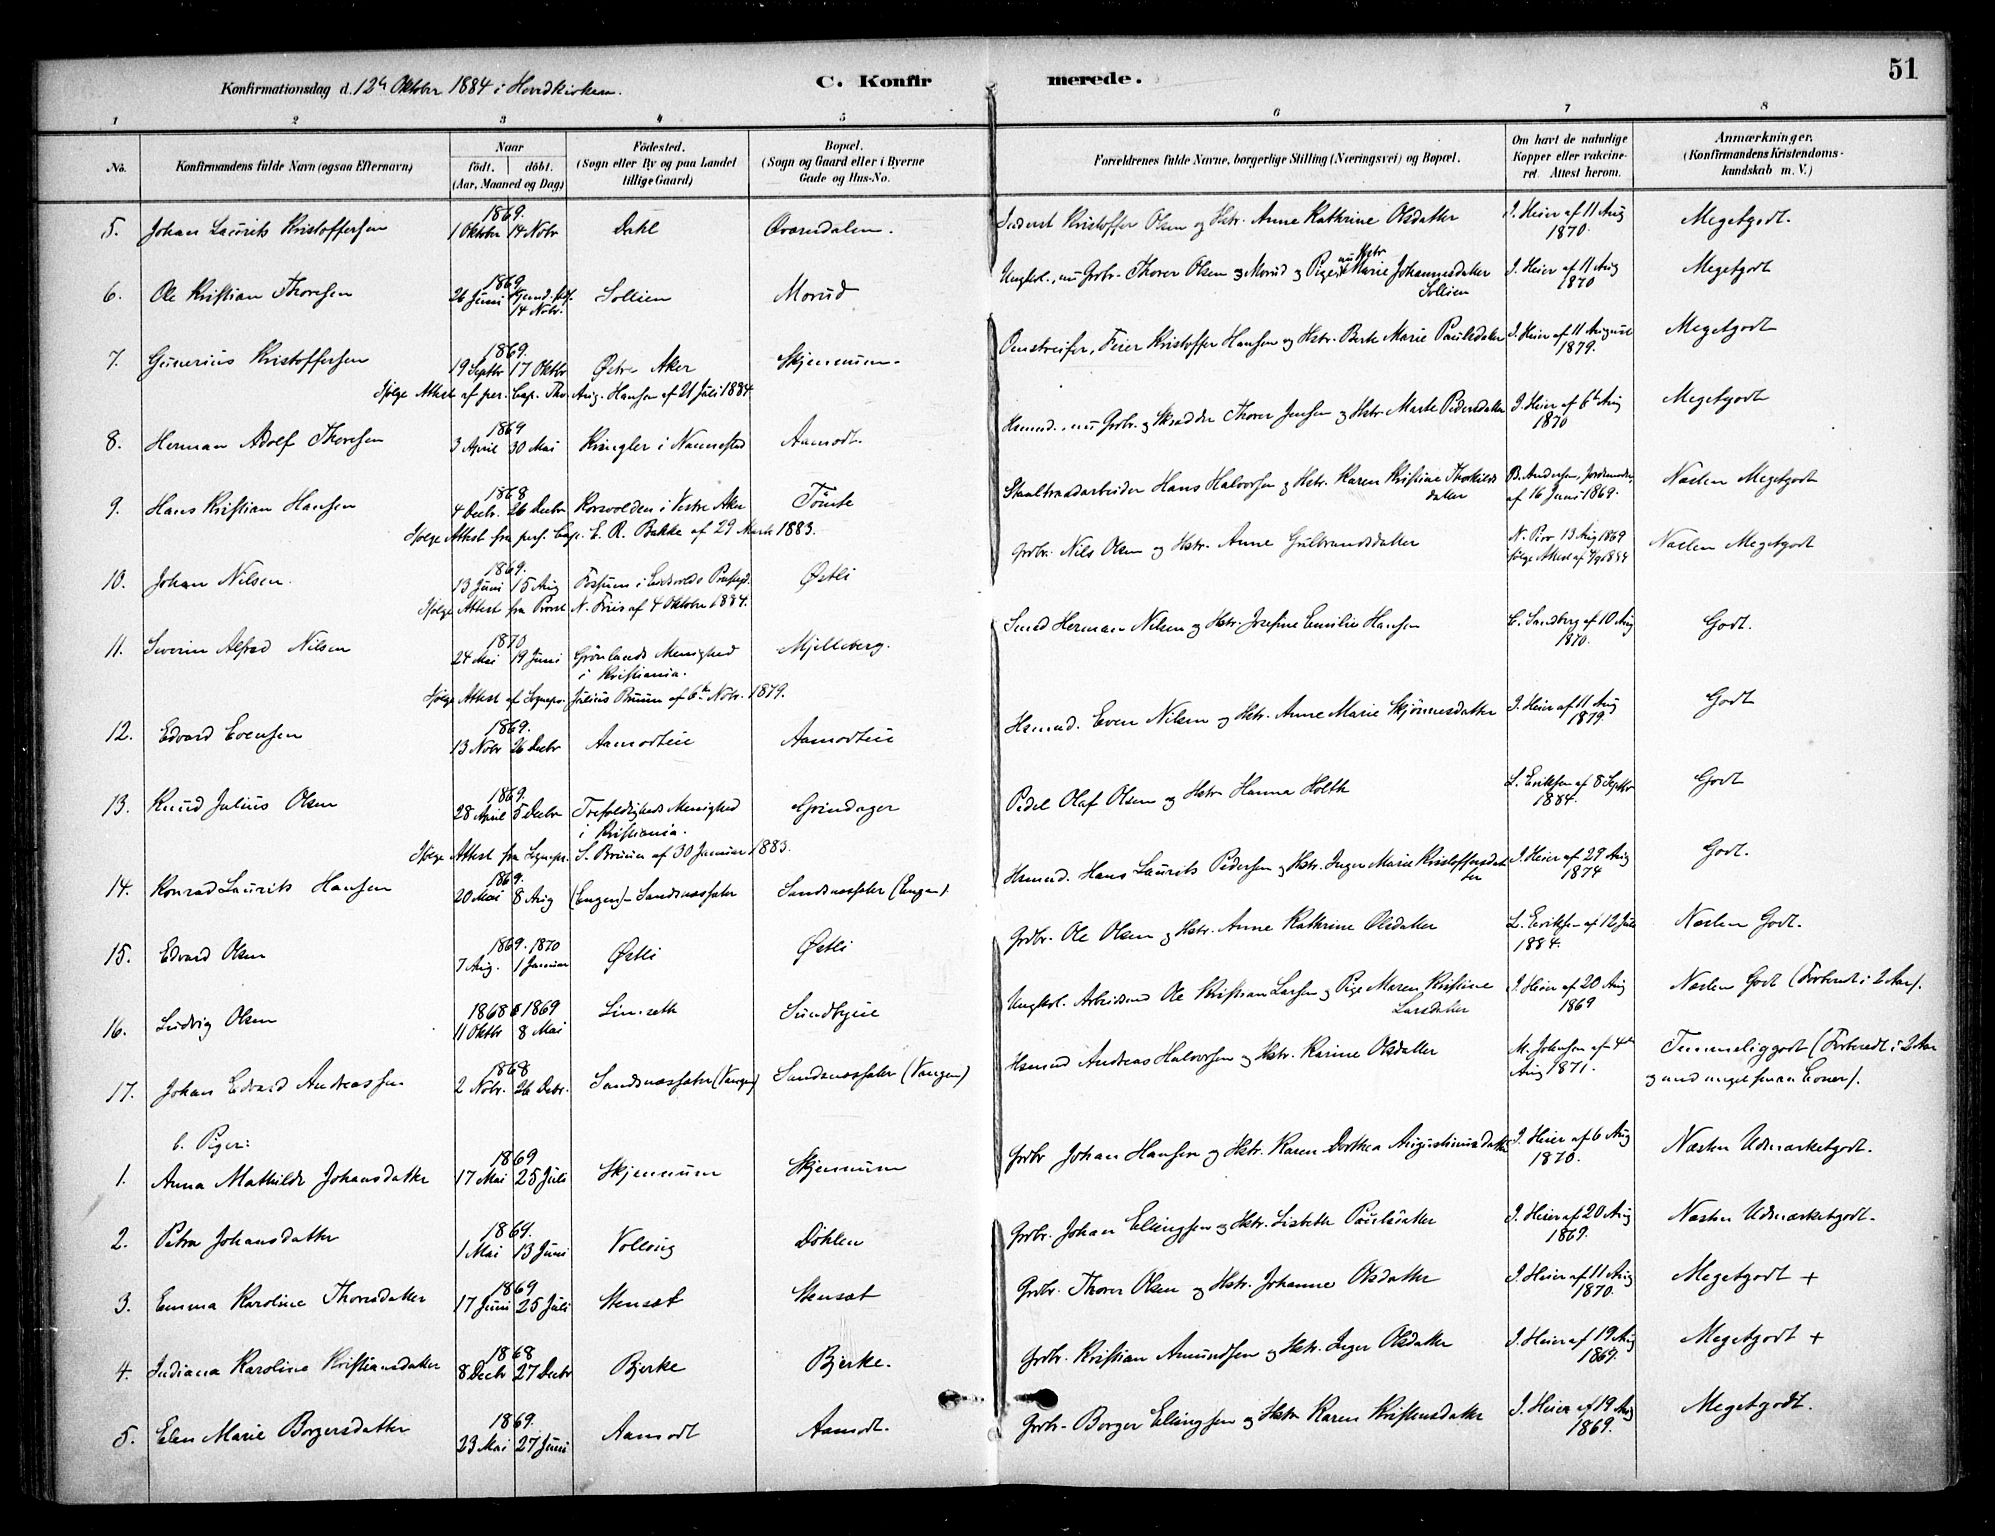 Konfirmationsdag d. 12te Oktober 1884 i Hovedkirken.
C. Konfir merede.
51
1 2 3 4 5 6 7 8
No. Konfirmandens fulde Navn (ogsaa Efternavn)
Naar födt. döbt. (Aar, Maaned og Dag)
Födested. (Sogn eller By og paa Landet tillige Gaard)
Bopæl. (Sogn og Gaard eller i Byerne Gade og Hus-No.
Forældrenes fulde Navne, borgerlige Stilling (Næringsvei) og Bopæl.
Om havt de naturlige Kopper eller vakcineret. Attest herom.
Anmærkninger. (Konfirmandens Kristendomskundskab m. V.)
1869.
5. Johan Laurits Kristoffersen 1 Oktbr 14 Novbr Dahl Inderst Kristoffer Olsen og Hstr. Anne Kathrine Olsdatter I. Heier af 11 Aug 1870. Megetgodt.
1869.
6. Ole Kristian Thoresen 26 Juni 14 Novbr. Sollien Morud Ungkl., nu Grbr. Thorer Olsen Morud og Pige, nu Hstr Marie Johannesdatter Sollien I. Heier af 11 Aug 1870 Megetgodt
1869.
7. Gunerius Kristoffersen 19 Septbr 17 Oktbr Østre Aker Skjennum. Omstreifer, Feier Kristoffer Hansen og Hstr. Berte Marie Paulsdatter I. Heier af 11 August 1879. Megetgodt
Ifølge Attest af pers. Cap. Th. Aug. Hansen af 21 Juli 1884.
1869
8. Herman Adolf Thoresen 3 April 30 Mai Kringler i Nannestad Aamodt. Hsmnd., nu Grbr. og Skrædder Thorer Jensen og Hstr. Marte Pedersdatter I. Heier af 6te Aug 1870 Megetgodt
1868
9. Hans Kristian Hansen 4 Decbr. 26 Decbr Korsvolden i Vestre Aker Tömte Staaltraadarbeider Hans Halvorsen og Hstr. Karen Kristine Thorkildsdatter B. Andersen, Jordmoder, af 16 Juni 1869. Næsten Megetgodt
Ifølge Attest fra pers. Cap. E. R. Bakke af 29 Marts 1883.
1869.
10. Johan Nilsen. 13 Juni 15 Aug Fossum i Eidsvolds Præstegd. Østli Grbr. Nils Olsen og Hstr. Anne Gulbrandsdatter 13 Aug 1869 Næsten Megetgodt
Ifølge Attest fra Provst N. Friis af 4 Oktober 1884.
1870
11. Severin Alfred Nilsen 24 Mai 19 Juni Grönlands Menighed i Kristiania. Mjelleberg. Smed Herman Nilsen og Hstr. Josefine Emilie Hansen C. Sandberg af 10 Aug 1870. Godt.
Ifølge Attest af Sognepr. Julius Bruun af 6te Novbr. 1879.
1869.
12. Edvard Evensen 13 Novbr 26 Decbr Aamodteie Aamodteie Hsmnd. Even Nilsen og Hstr. Anne Marie Skjönnesdatter I. Heier af 11 Aug 1879. Godt
1869.
13. Knud Julius Olsen 28 April 5 Decbr Trefoldigheds Menighed i Kristiania. Grindager Pedel Olaf Olsen og Hstr Hanna Holth L. Eriksen af 8 Septbr 1884. Godt
Ifølge Attest fra Sognepr. S. Bruun af 30 Januar 1883.
1869.
14. Konrad Laurits Hansen 20 Mai 8 Aug (Engen)- Sandsnessæter Sandsnessæter (Engen). Hsmnd. Hans Laurits Pedersen og Hstr. Inger Marie Kristoffersdatter I. Heier af 29 Aug 1874 Godt.
1869. 1870
15. Edvard Olsen 7 Aug. 1 Januar Østli Østli Grbr. Ole Olsen og Hstr. Anne Kathrine Olsdatter L. Eriksen af 12 Juli 1884. Næsten Godt.
1868 1869
16. Ludvig Olsen 11 Oktbr 8 Mai Sundbyeie Ungkl. Arbeidsmd Ole Kristian Larsen og Pige Maren Kristine Larsdatter I. Heier af 20 Aug 1869 Næsten Godt (Forberedt i 2 Aar).
1868
17. Johan Edvard Andreassen 2 Novbr. 26 Decbr. Sandsnessæter (Vangen) Sandsnessæter (Vangen) Hsmnd Andreas Halvorsen og Hstr. Karine Olsdatter M. Johnsen af 4de Aug 1871. Temmelig godt (Forberedt i 2 Aar og med meget smaa Evner).
b. Piger:
1869
1. Anna Mathilde Johansdatter 17 Mai 25 Juli Skjennum Skjennum Grbr Johan Hansen og Hstr. Karen Dorthea Augustinusdatter I. Heier af 6 Aug 1870. Næsten Udmærketgodt.
1869.
2. Petra Johansdatter 1 Mai 13 Juni Vollaug Döhlen Grbr. Johan Elingsen og Hstr. Lisbeth Paulsdatter I. Heier af 20 Aug 1869. Næsten Udmærketgodt.
1869
3. Emma Karoline Thorersdatter 17 Juni 25 Juli Stensæt Stensæt Grbr. Thorer Olsen og Hstr. Johanne Olsdatter I. Heier af 11 Aug 1870. Megetgodt +
1868
4. Indiana Karoline Kristiansdatter 8 Decbr 27 Decbr Bjerke Bjerke. Grbr. Kristian Amundsen og Hstr. Inger Olsdatter I. Heier af 19 Aug 1869. Megetgodt +
1869.
5. Elen Marie Borgersdatter 23 Mai 27 Juni Aamodt Aamodt. Grbr. Borger Elingsen og Hstr Karen Kristensdatter I. Heier af 19 Aug 1869. Megetgodt.